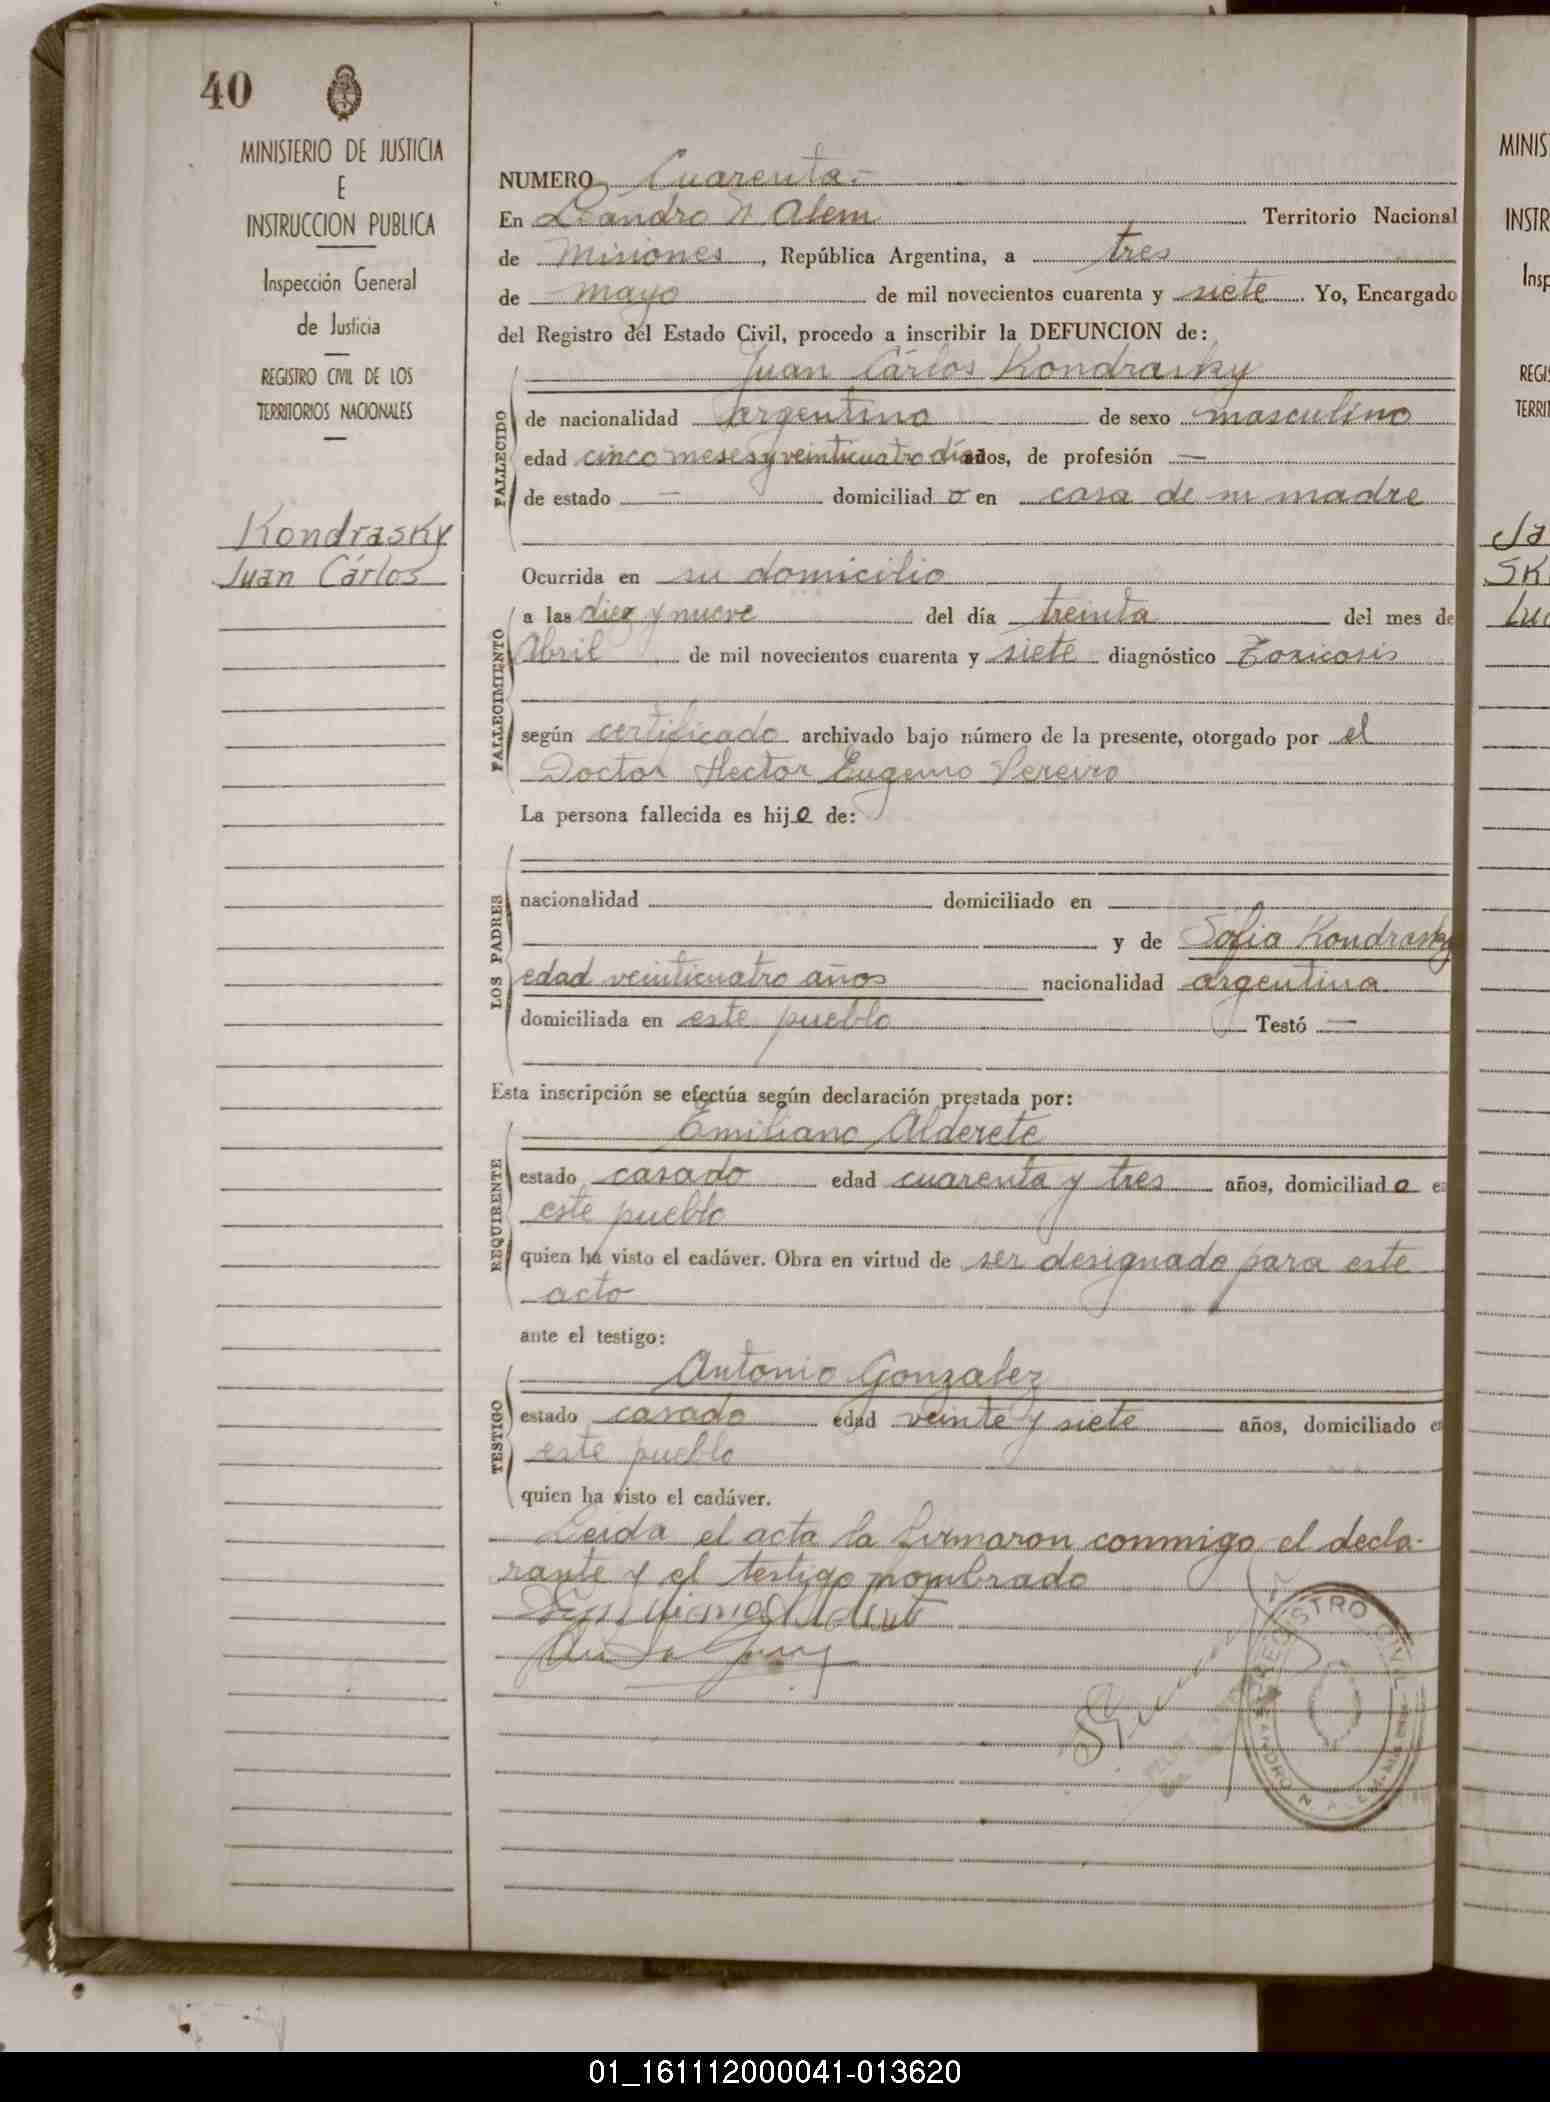 40
MINISTERIO DE JUSTICIA
E
INSTRUCCION PUBLICA
Inspección General
de Justicia
REGISTRO CIVIL DE LOS
TERRITORIOS NACIONALES
Kondrasky
Juan Cárlos
NUMERO Cuarenta.-
En Leandro N Alem Territorio Nacional
de Misiones, República Argentina, a tres
de mayo de mil novecientos cuarenta y siete. Yo, Encargado
del Registro del Estado Civil, procedo a inscribir la DEFUNCION de:
Juan Cárlos Kondrasky
FALLECIDO
de nacionalidad argentino de sexo masculino
edad cinco meses y veinticuatro días años, de profesión —
de estado — domiciliado en casa de su madre
Ocurrida en su domicilio
FALLECIMIENTO
a las diez y nueve del día treinta del mes de
Abril de mil novecientos cuarenta y siete diagnóstico Toxicosis
según certificado archivado bajo número de la presente, otorgado por el
Doctor Hector Eugenio Pereiro
La persona fallecida es hijo de:
LOS PADRES
nacionalidad domiciliado en
y de Sofia Kondrasky
edad veinticuatro años nacionalidad argentina
domiciliada en este pueblo Testó —
Esta inscripción se efectúa según declaración prestada por:
Emiliano Alderete
REQUIRENTE
estado casado edad cuarenta y tres años, domiciliado e
este pueblo
quien ha visto el cadáver. Obra en virtud de ser designado para este
acto
ante el testigo:
Antonio Gonzalez
TESTIGO
estado casado edad veinte y siete años, domiciliado e
este pueblo
quien ha visto el cadáver.
Leida el acta la firmaron conmigo el decla-
rante y el testigo nombrado
REGISTRO CIVIL
LEANDRO N. ALEM
MINIS
INSTR
Insp
REGIS
TERRIT
Ja
SK
Lu
01_161112000041-013620